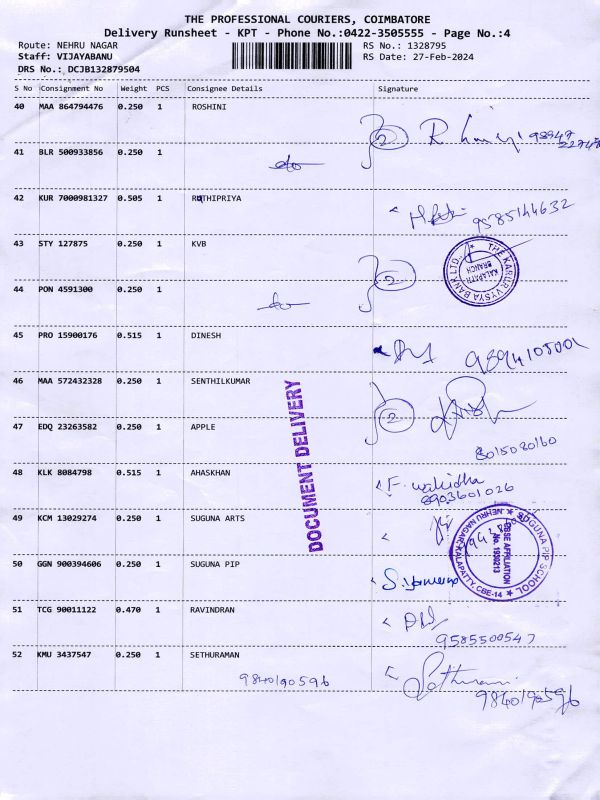 THE PROFESSIONAL COURIERS, COIMBATORE
Delivery Runsheet - KPT - Phone No.:0422-3505555 - Page No.:4
Route: NEHRU NAGAR
RS No.: 1328795
Staff: VIJAYABANU
RS Date: 27-Feb-2024
DRS No.: DCJB132879504
S No Consignment No Weight PCS Consignee Details Signature
40 MAA 864794476 0.250 1 ROSHINI
2
41 BLR 500933856 0.250 1 do
42 KUR 7000981327 0.505 1 RUTHIPRIYA
9585144632
43 STY 127875 0.250 1 KVB
THE KARUR VYSYA BANK LTD.,
KALAPATTI
BRANCH
2
44 PON 4591300 0.250 1 do
45 PRO 15900176 0.515 1 DINESH
46 MAA 572432328 0.250 1 SENTHILKUMAR
2
47 EDQ 23263582 0.250 1 APPLE
8015080160
DOCUMENT DELIVERY
48 KLK 8084798 0.515 1 AHASKHAN
F. wahidha
8903601026
49 KCM 13029274 0.250 1 SUGUNA ARTS
SUGUNA PIP SCHOOL
NEHRU NAGAR, KALAPATTY, CBE-14
CBSE AFFILIATION
No. 1930213
50 GGN 900394606 0.250 1 SUGUNA PIP
51 TCG 90011122 0.470 1 RAVINDRAN
9585500547
52 KMU 3437547 0.250 1 SETHURAMAN
9840190596
Sethuraman
9840190596